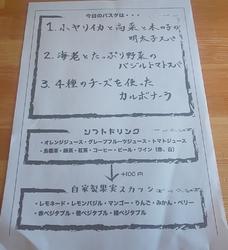 今日のパスタは・・・
1. 小ヤリイカと高菜と木の子が
明太子スパ
2. 海老とたっぷり野菜の
バジルトマトスパ
3. 4種のチーズを使った
カルボナーラ
ソフトドリンク
・オレンジジュース・グレープフルーツジュース・トマトジュース
・烏龍茶・緑茶・紅茶・コーヒー・ビール・ワイン（赤、白）
+100円
自家製果実スカッシュ
・レモネード・レモンバジル・マンゴー・りんご・みかん・ベリー
・赤ベジタブル・橙ベジタブル・緑ベジタブル